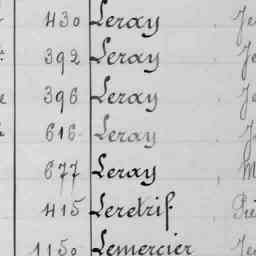 430 Leray Je
392 Leray Je
396 Leray Je
616 Leray J
677 Leray M
415 Leretrif Pie
1150 Lemercier Je